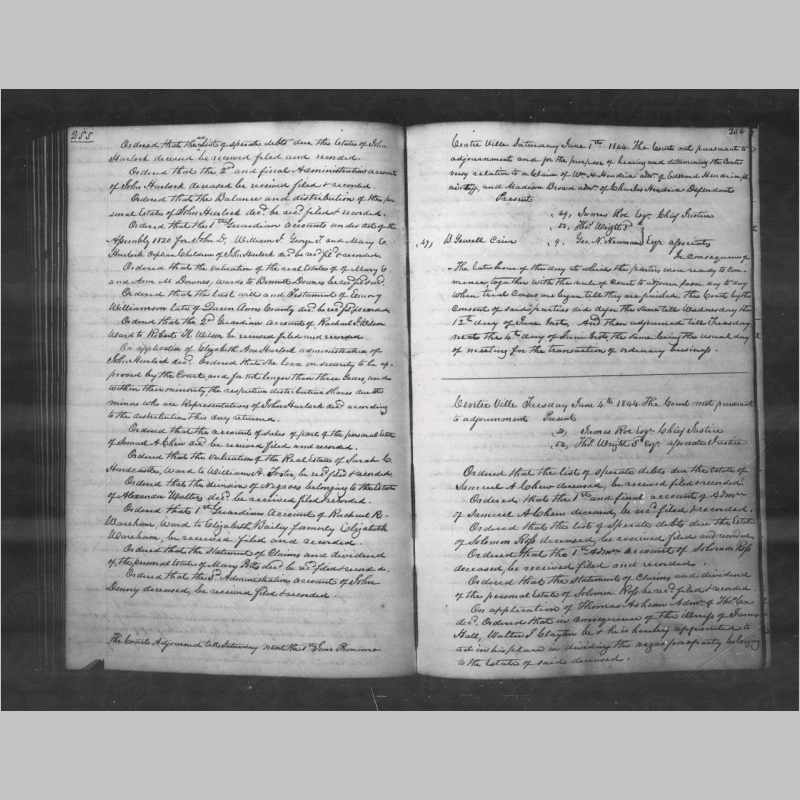 255
Ordered that the list of sperate debts due the Estate of John
Hurlock deceased be received filed and recorded.
Ordered that the 2d and final Administration account
of John Hurlock deceased be received filed & recorded.
Ordered that the Balance and distribution of the per
sonal Estate of John Hurlock decd. be recd. filed & recorded.
Ordered that the 1st Guardian accounts under act of the
Assembly 1820 for John D, William J, George T, and Mary C
Hurlock Orphan Children of John Hurlock decd. be recd. fild & recorded
Ordered that the valuation of the real estate of Mary C
and Ann M. Downes, wards to Downes be recd. fild & recd.
Ordered that the Last will and Testament of Emory
Williamson late of Queen Anns County decd. be recd. fild & recorded
Ordered that the 2d Guardian Account of Rachael J. Wilson
Ward to Robert H. Wilson be received filed and recorded
On application of Elizabeth Ann Hurlock administratrix of
John Hurlock decd. Ordered that she loan on security to be ap-
proved by the Court, and for no longer than three years, and
within their minority, the respective distributive Shares due the
minors who are Representatives of John Hurlock decd. according
to the distribution this day returned.
Ordered that the account of sales of part of the personal Estate
of Samuel A Chew decd. be received filed and recorded.
Ordered that the Valuation of the Real Estate of Sarah C.
Hardcastle, Ward to William H. Foster, be recd. filed & recorded
Ordered that the division of Negroes belonging to the Estate
of Alexander Walters decd. be received filed recorded.
Ordered that 1st Guardians Account of Rachael R.
Wareham, Ward to Elizabeth Bailey, formerly Elizabeth
Wareham, be received filed and recorded.
Ordered that the Statement of Claims and dividend
of the personal Estate of Mary Pitts decd. be recd. filed & recorded.
Ordered that the Administration account of John
Denny deceased, be received filed & recorded.
The Courts Adjourned till Saturday next the 1st June Proximo
256
Centre Ville Saturday June 1st 1844 The Court met pursuant to
adjournment and for the purpose of hearing and determining the Contro
versy relation to a Claim of Wm. H. Hendrix admr. of Edward Hendrix pl
aintiff, and Madison Brown admr. of Charles Hendrix Defendants
Present
49, James Roe Esqr. Chief Justice
52, Thos. Wright 3d
47, B Jewell Crier 9. Geo. N. Newnam Esqr associates
In consequence of
the late hour of the day at which the parties were ready to com-
mence, together with the rule of Court to adjourn from day to day
when trial Cases are begun till they are finished, this Court by the
Consent of said parties and defer the same till Wednesday the
12th day of June Inst, And then adjourned till Tuesday
next the 4th day of June Inst the same being the usual day
of meeting for the transaction of ordinary business.
Centre Ville Tuesday June 4th 1844 The Court met pursuant
to adjournment Present
James Roe Esqr Chief Justice
Thos. Wright 3d Esqr associate Justice
Ordered that the list of sperate debts due the estate of
Samuel A Chew deceased, be received filed & recorded.
Ordered that the 1st and final account of Admr.
of Samuel A. Chew deceased, be recd. filed & recorded.
Ordered that the list of Sperate debts due the Estate
of Solomon Ross deceased, be received filed and recorded,
Ordered that the 1st Admr. account of Solomon Ross
deceased, be received filed and recorded.
Ordered that the Statement of Claims and dividend
of the personal Estate of Solomon Ross be recd. filed & recorded
On application of Thomas Askeon Admr. of Thos. Cox
decd. Ordered that in consequence of the illness of James
Hall, Walter J. Clayton be & he is hereby appointed to
act in his place in dividing the negro property belonging
to the Estate of said deceased.